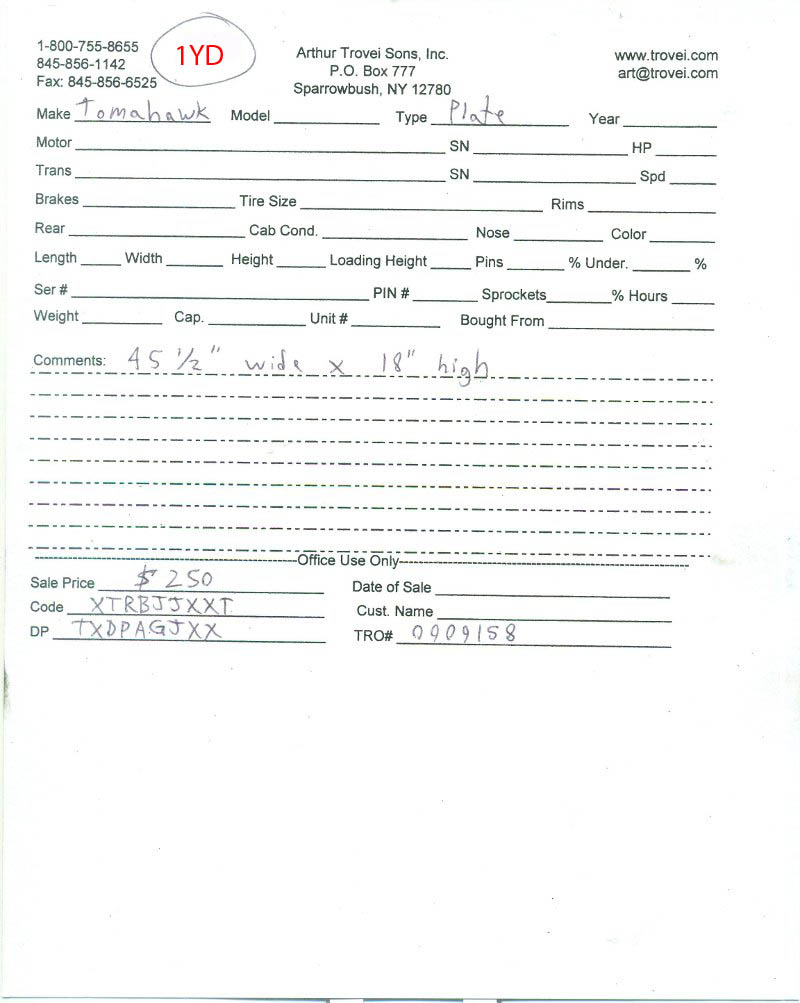 1-800-755-8655
845-856-1142
Fax: 845-856-6525
1YD
Arthur Trovei Sons, Inc.
P.O. Box 777
Sparrowbush, NY 12780
www.trovei.com
art@trovei.com
Make Tomahawk Model Type Plate Year
Motor SN HP
Trans SN Spd
Brakes Tire Size Rims
Rear Cab Cond. Nose Color
Length Width Height Loading Height Pins % Under. %
Ser # PIN # Sprockets % Hours
Weight Cap. Unit # Bought From
Comments: 45 1/2" wide x 18" high
Office Use Only
Sale Price $250 Date of Sale
Code XTRBJJXXT Cust. Name
DP TXDPAGJXX TRO# 0909158